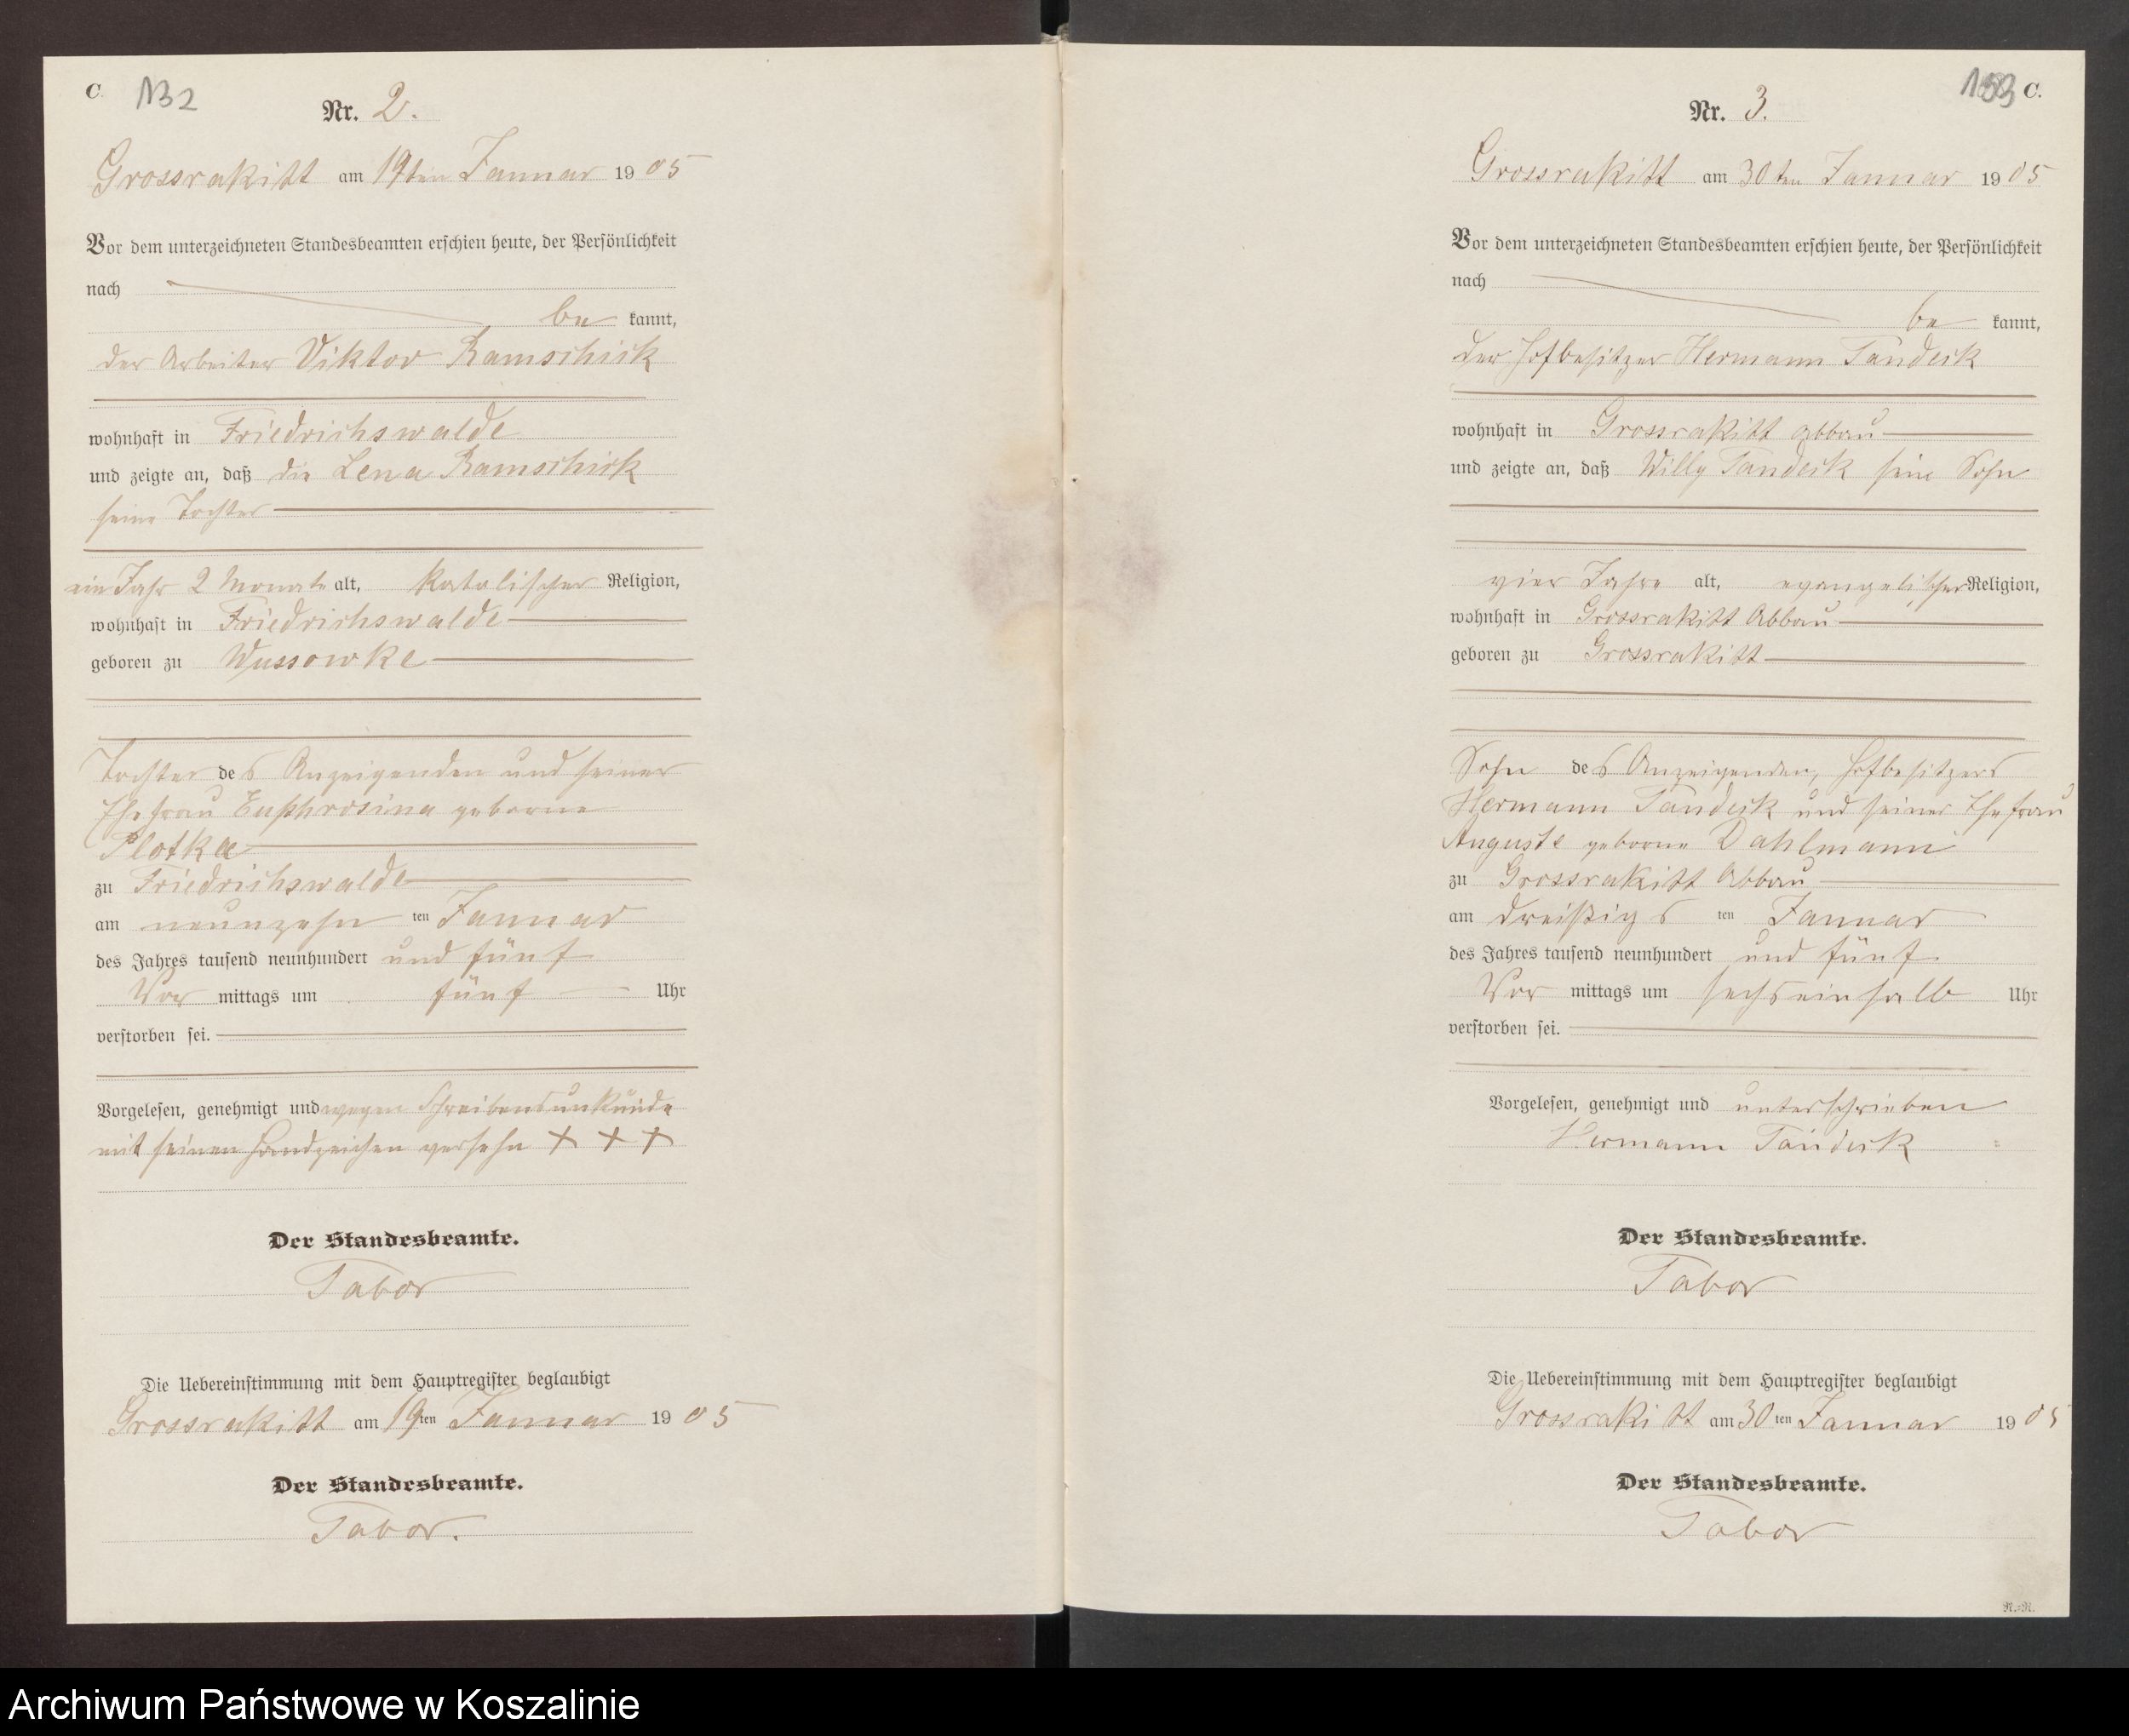 C. 132
Nr. 2.
Grossrakitt am 19ten Januar 1905
Vor dem unterzeichneten Standesbeamten erschien heute, der Persönlichkeit
nach
be kannt,
der Arbeiter Viktor Ramschick
wohnhaft in Friedrichswalde
und zeigte an, daß die Lena Ramschick
seine Tochter
ein Jahr 2 Monate alt, katolischer Religion,
wohnhaft in Friedrichswalde
geboren zu Wussowke
Tochter des Anzeigenden und seiner
Ehefrau Euphrosina geborne
Plotka
zu Friedrichswalde
am neunzehn ten Januar
des Jahres tausend neunhundert und fünf
Vor mittags um fünf Uhr
verstorben sei.
Vorgelesen, genehmigt und wegen Schreibensunkunde
mit seinen Handzeichen versehn + + +
Der Standesbeamte.
Tabor
Die Uebereinstimmung mit dem Hauptregister beglaubigt
Grossrakitt am 19ten Januar 1905
Der Standesbeamte.
Tabor.
C.
Nr. 3.
Grossrakitt am 30ten Januar 1905
Vor dem unterzeichneten Standesbeamten erschien heute, der Persönlichkeit
nach
be kannt,
der Hofbesitzer Hermann Tandeck
wohnhaft in Grossrakitt Abbau
und zeigte an, daß Willy Tandeck sein Sohn
vier Jahre alt, evangelischer Religion,
wohnhaft in Grossrakitt Abbau
geboren zu Grossrakitt
Sohn des Anzeigenden, Hofbesitzers
Hermann Tandeck und seiner Ehefrau
Auguste geborne Dahlmann
zu Grossrakitt Abbau
am dreißigs ten Januar
des Jahres tausend neunhundert und fünf
Vor mittags um sechseinhalb Uhr
verstorben sei.
Vorgelesen, genehmigt und unterschrieben
Hermann Tandeck
Der Standesbeamte.
Tabor
Die Uebereinstimmung mit dem Hauptregister beglaubigt
Grossrakitt am 30ten Januar 1905
Der Standesbeamte.
Tabor
R.-R.
Archiwum Państwowe w Koszalinie